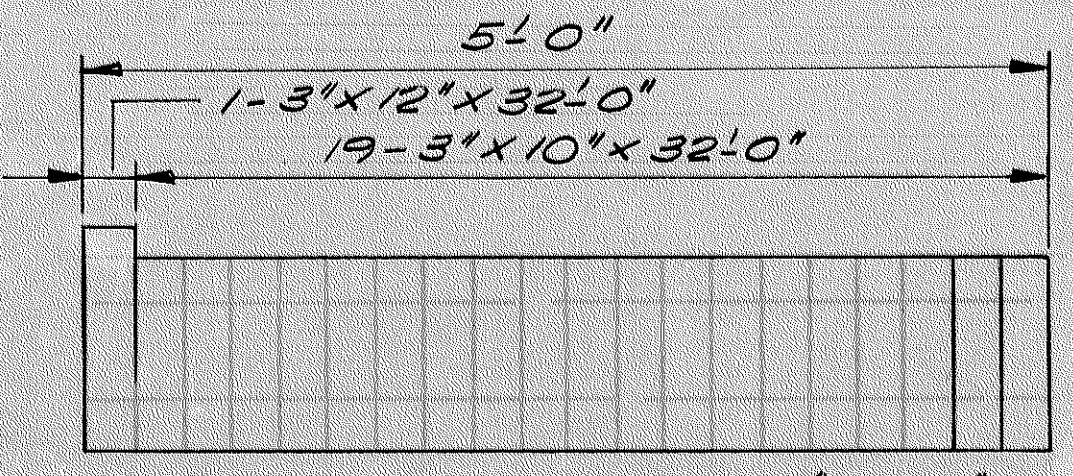 5'-0"
1-3"X12"X32'-0"
19-3"X10"X32'-0"